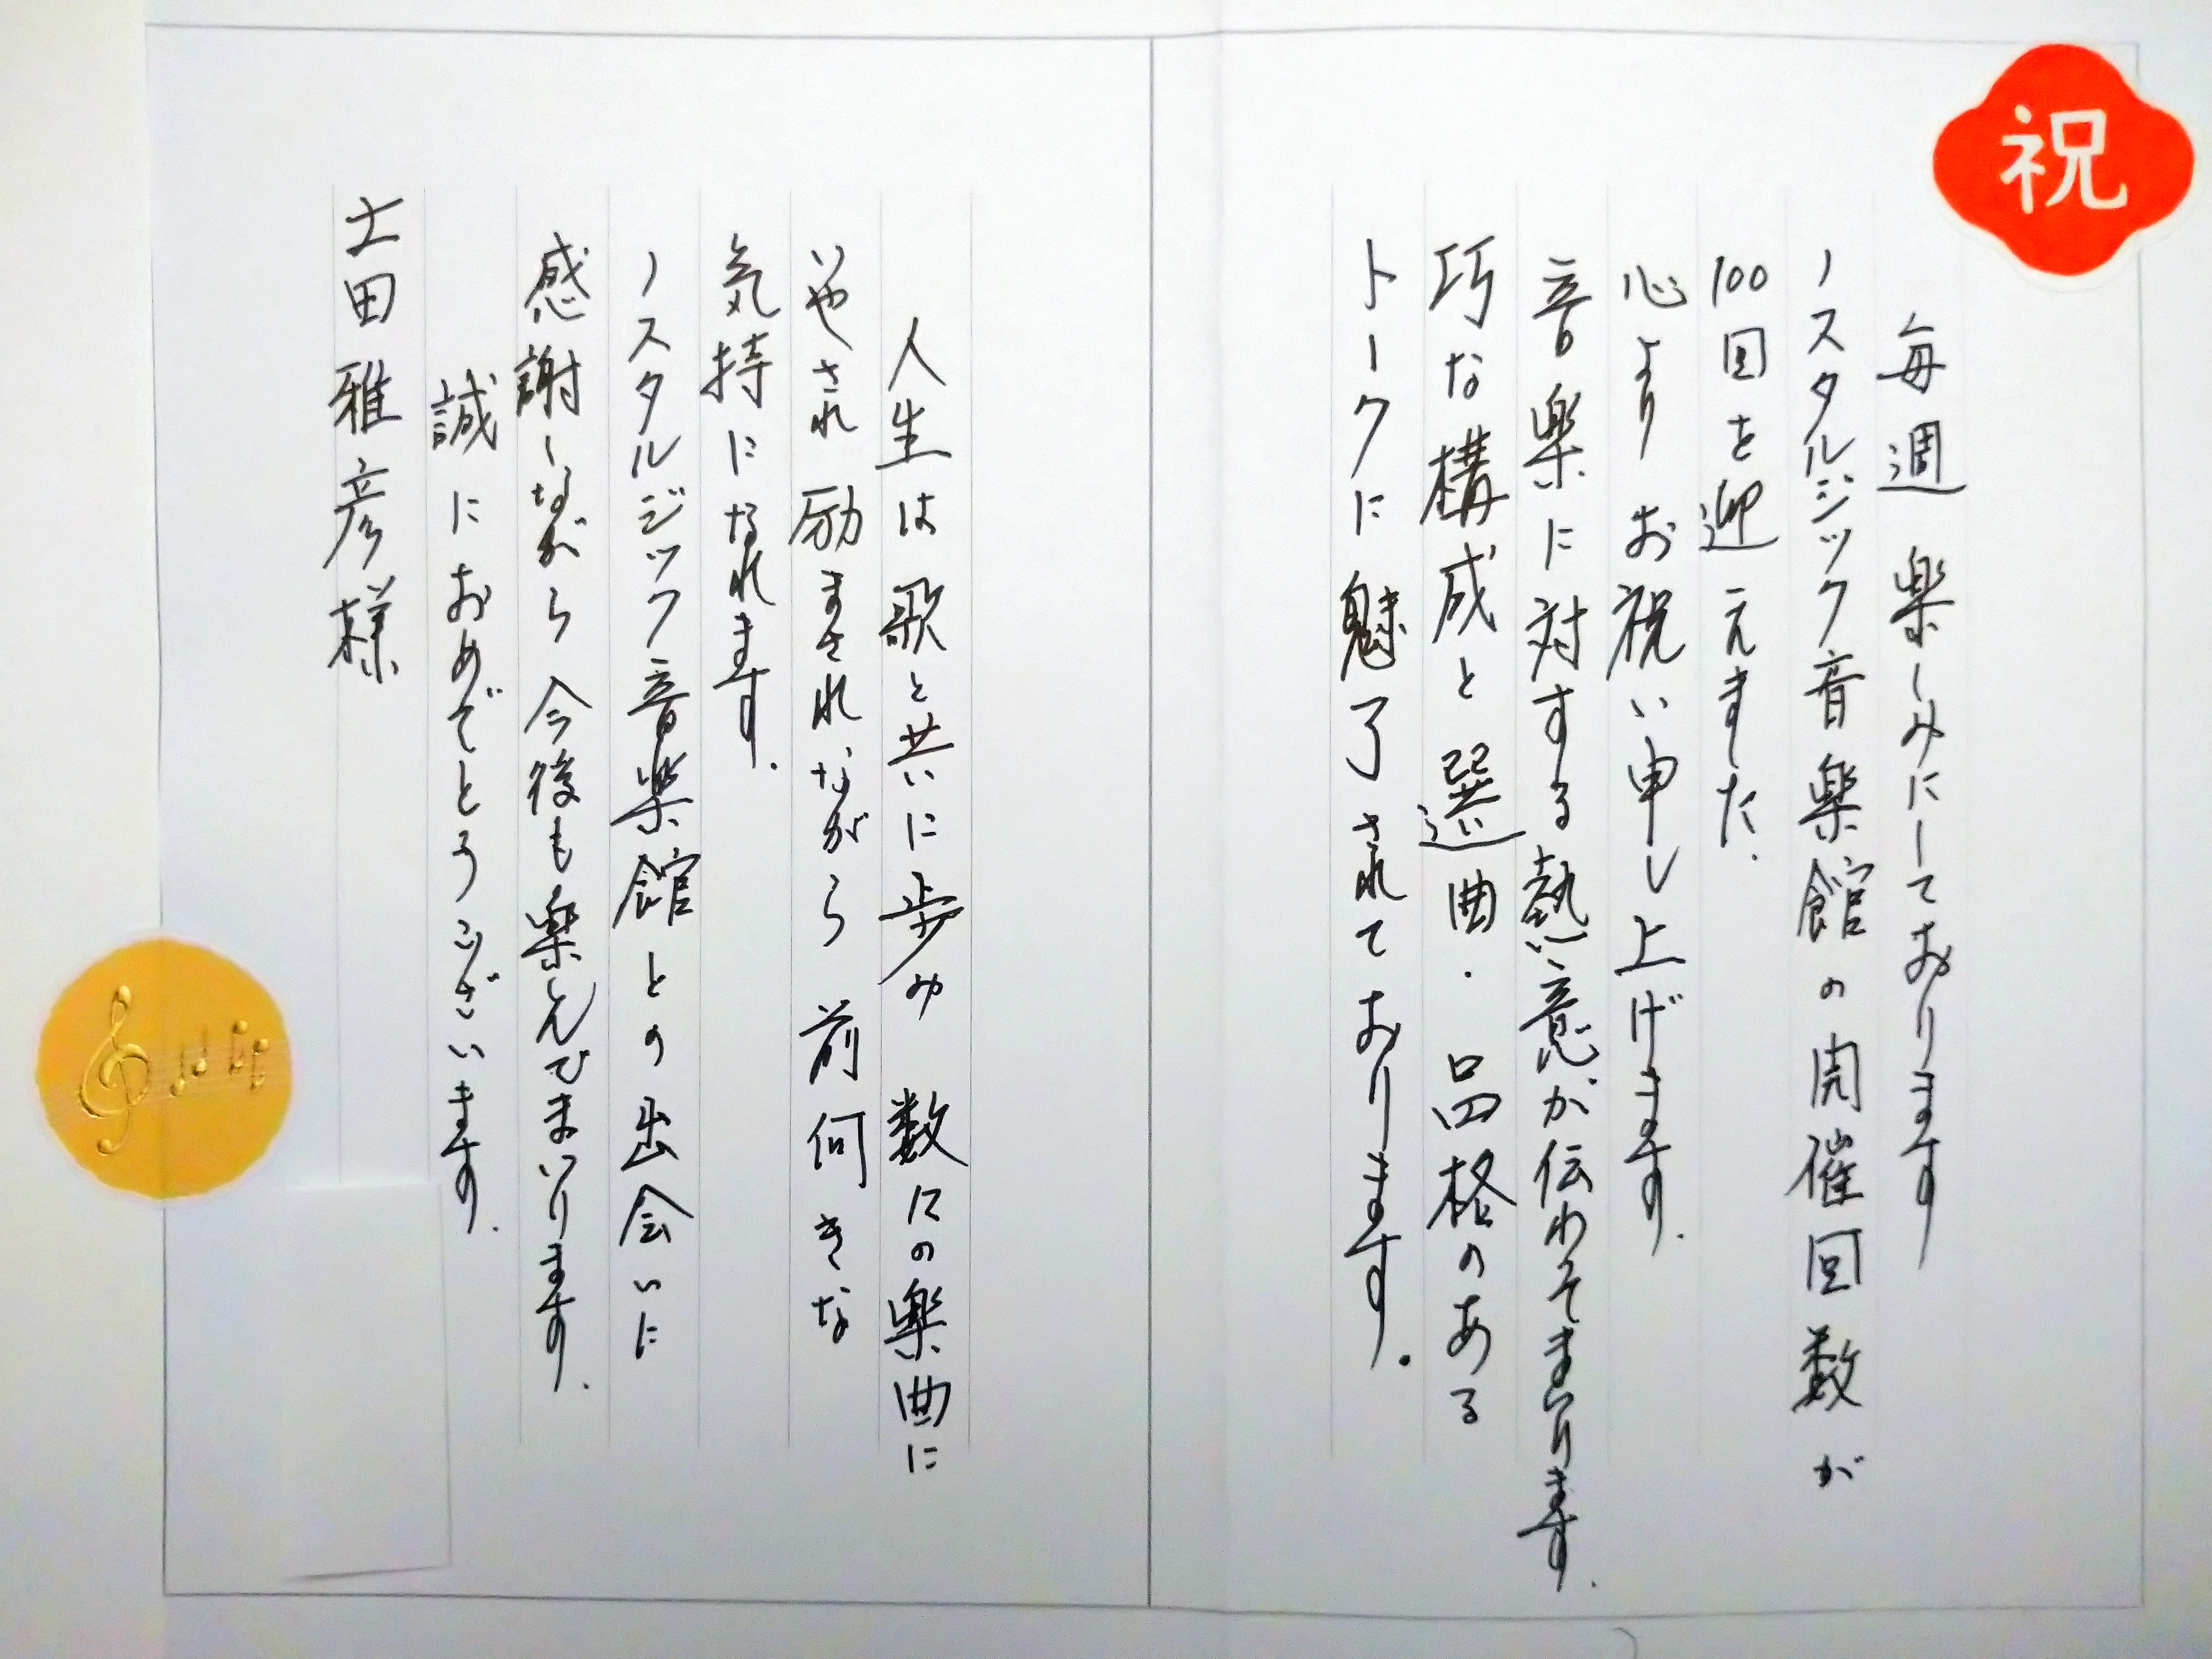 祝
毎週楽しみにしております
ノスタルジック音楽館の開催回数が
100回を迎えました.
心よりお祝い申し上げます.
音楽に対する熱い意が伝わってまいります.
巧な構成と選曲.品格のある
トークに魅了されております.
人生は歌と共に歩み 数々の楽曲に
いやされ励まされながら前向きな
気持になれます.
ノスタルジック音楽館との出会いに
感謝しながら今後も楽しんでまいります.
誠におめでとうございます.
土田雅彦様